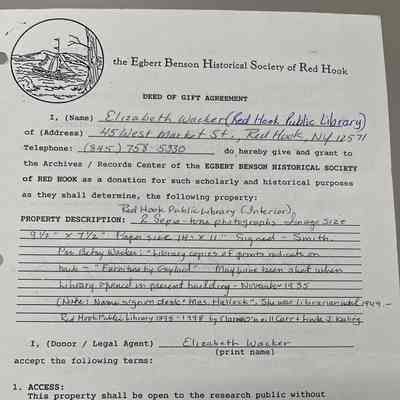 the Egbert Benson Historical Society of Red Hook
DEED OF GIFT AGREEMENT
I, (Name) Elizabeth Wacker (Red Hook Public Library)
of (Address) 45 West Market St., Red Hook, NY 12571
Telephone: (845) 758-5330 do hereby give and grant to
the Archives / Records Center of the EGBERT BENSON HISTORICAL SOCIETY
of RED HOOK as a donation for such scholarly and historical purposes
as they shall determine, the following property:
Red Hook Public Library (Interior),
PROPERTY DESCRIPTION: 2 Sepia-tone photographs Image Size
9½" x 7½" Paper size 14" x 11" Signed - Smith
Per Betsy Wacker: "Library copies of prints indicate on
back - "Furniture by Gaylord" May have been shot when
Library opened in present building - November 1935
(Note: Name sign on desk "Mrs. Hallock". She was librarian until 1949. -
Red Hook Public Library 1898-1998 by Clare O'Neill Carr &
I, (Donor / Legal Agent) Elizabeth Wacker
(print name)
accept the following terms:
1. ACCESS:
This property shall be open to the research public without